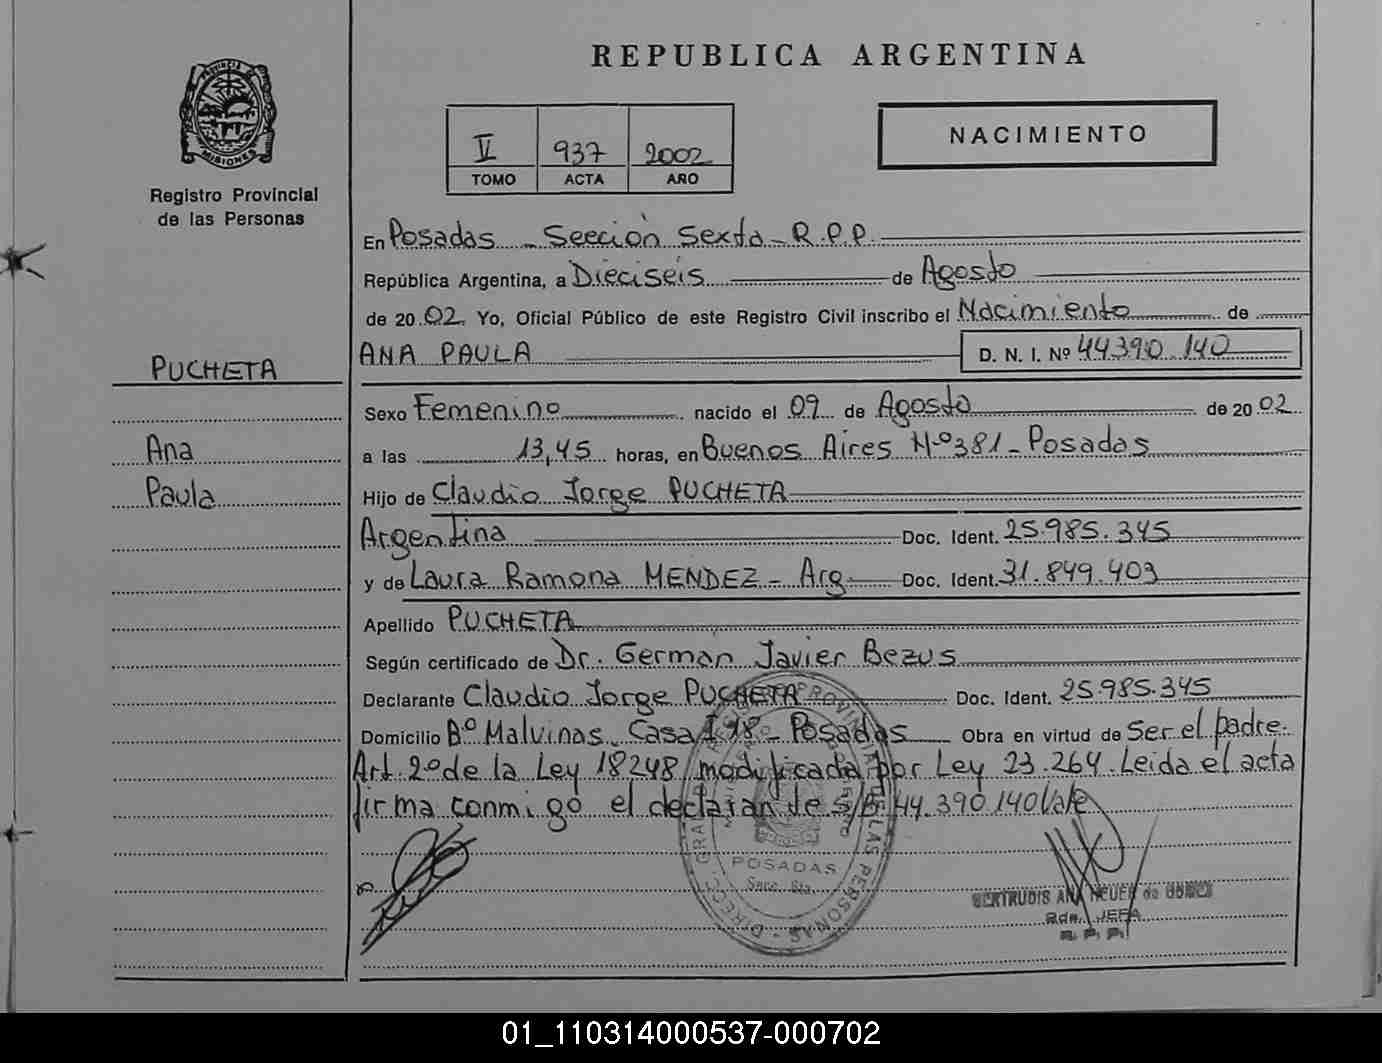 REPUBLICA ARGENTINA
PROVINCIA DE
MISIONES
Registro Provincial
de las Personas
V 937 2002
TOMO ACTA AÑO
NACIMIENTO
En Posadas - Sección Sexta - R.P.P.
República Argentina, a Dieciseis de Agosto
de 2002 Yo, Oficial Público de este Registro Civil inscribo el Nacimiento de
ANA PAULA D. N. I. Nº 44390.140
PUCHETA
Ana
Paula
Sexo Femenino nacido el 09 de Agosto de 2002
a las 13,45 horas, en Buenos Aires Nº 381 - Posadas
Hijo de Claudio Jorge PUCHETA
Argentina Doc. Ident. 25.985.345
y de Laura Ramona MENDEZ - Arg Doc. Ident. 31.849.403
Apellido PUCHETA
Según certificado de Dr. German Javier Bezus
Declarante Claudio Jorge PUCHETA Doc. Ident. 25.985.345
Domicilio Bº Malvinas Casa 198 - Posadas Obra en virtud de Ser el padre.
Art. 2º de la Ley 18248 modificada por Ley 23.264. Leida el acta
firma conmigo el declarante s/b 44.390140 Vale
POSADAS
Secc. 6ta.
GERTRUDIS ANA de GOMEZ
JEFA
R. P. P.
01_110314000537-000702